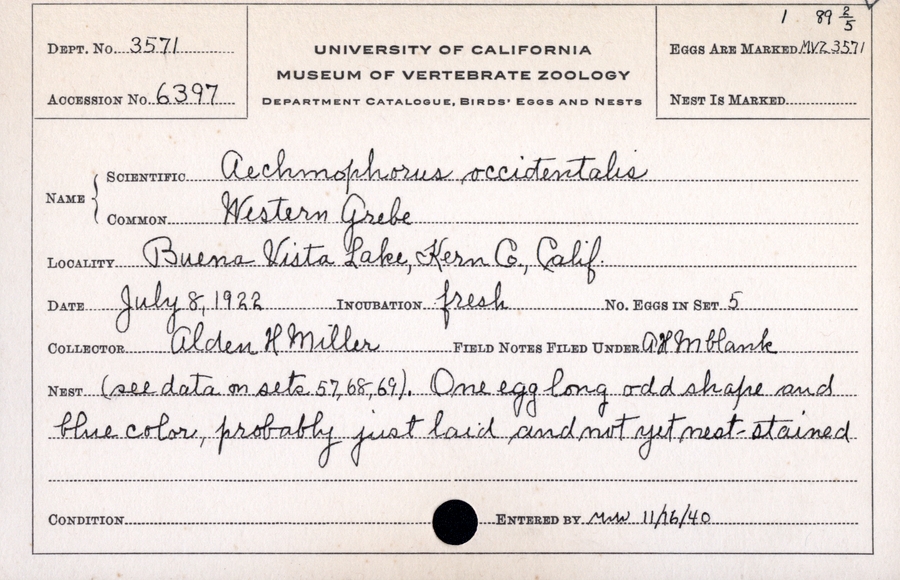 1 89 2/5
Dept. No. 3571
UNIVERSITY OF CALIFORNIA
Eggs Are Marked MVZ 3571
MUSEUM OF VERTEBRATE ZOOLOGY
Accession No. 6397
Department Catalogue, Birds' Eggs and Nests
Nest Is Marked
Name { Scientific Aechmophorus occidentalis
Common Western Grebe
Locality Buena Vista Lake, Kern Co., Calif.
Date July 8, 1922 Incubation fresh No. Eggs in Set 5
Collector Alden H Miller Field Notes Filed Under AHM blank
Nest (see data on sets 57, 68, 69). One egg long odd shape and
blue color, probably just laid and not yet nest-stained
Condition Entered by 11/16/40